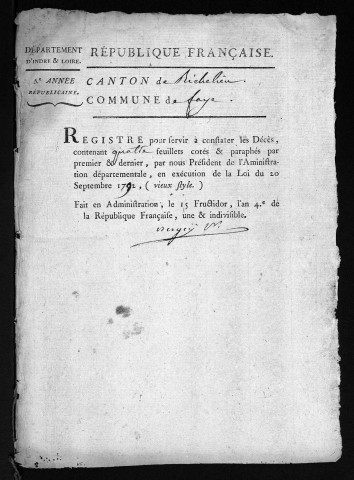 DÉPARTEMENT
D'INDRE & LOIRE.
RÉPUBLIQUE FRANÇAISE.
5.e ANNÉE
RÉPUBLICAINE.
CANTON de Richelieu.
COMMUNE de faye.
REGISTRE pour servir à constater les Décès,
contenant quatre feuillets cotés & paraphés par
premier & dernier, par nous Président de l'Aministra
tion départementale, en exécution de la Loi du 20
Septembre 1792, ( vieux style. )
Fait en Administration, le 15 Fructidor, l'an 4.e de
la République Française, une & indivisible.